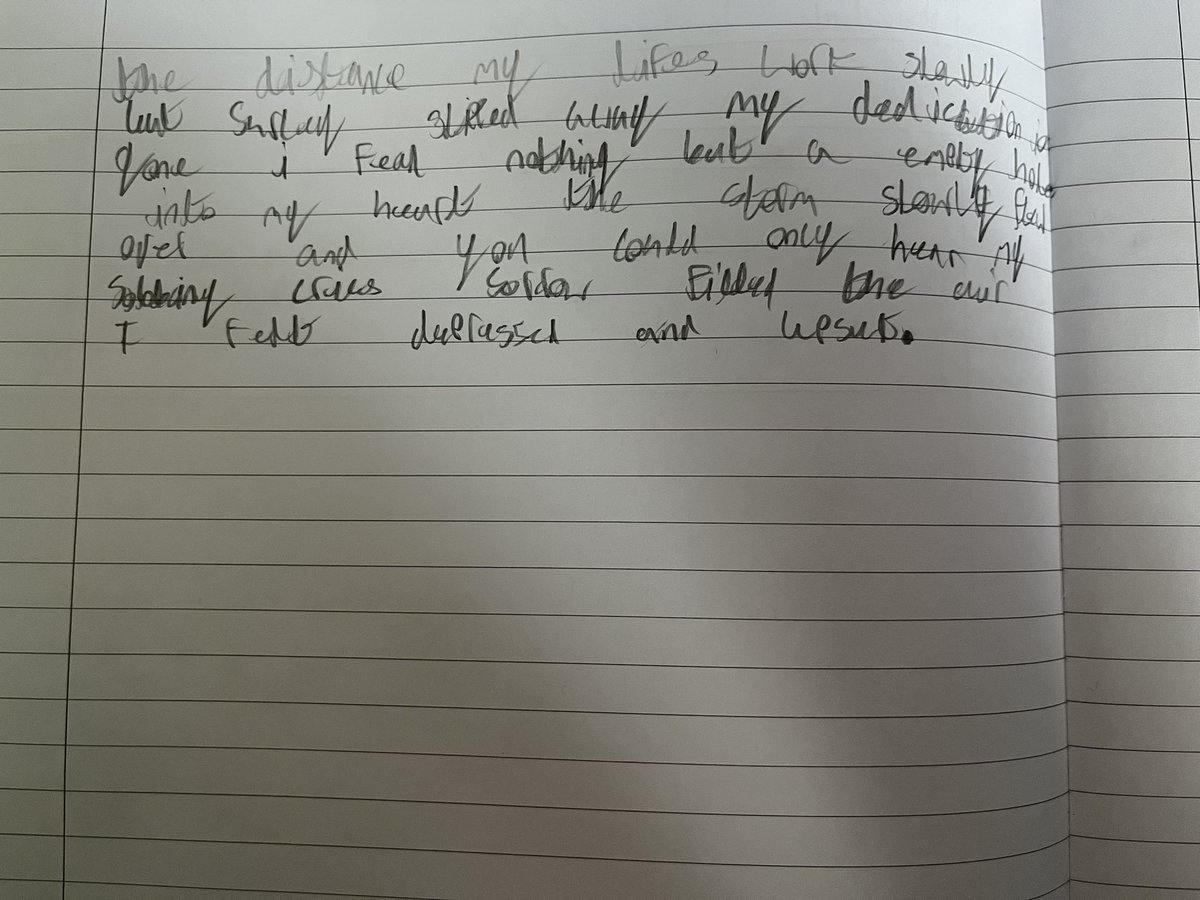 the distance my lifes work slowly
but surley sliped away my dedictation is
gone i Feal nothing but a empty hole
into my heart the storm slowly
over and you could only hear my
sobbing cries Sorrow Filled the air
I Felt depressed and upset.